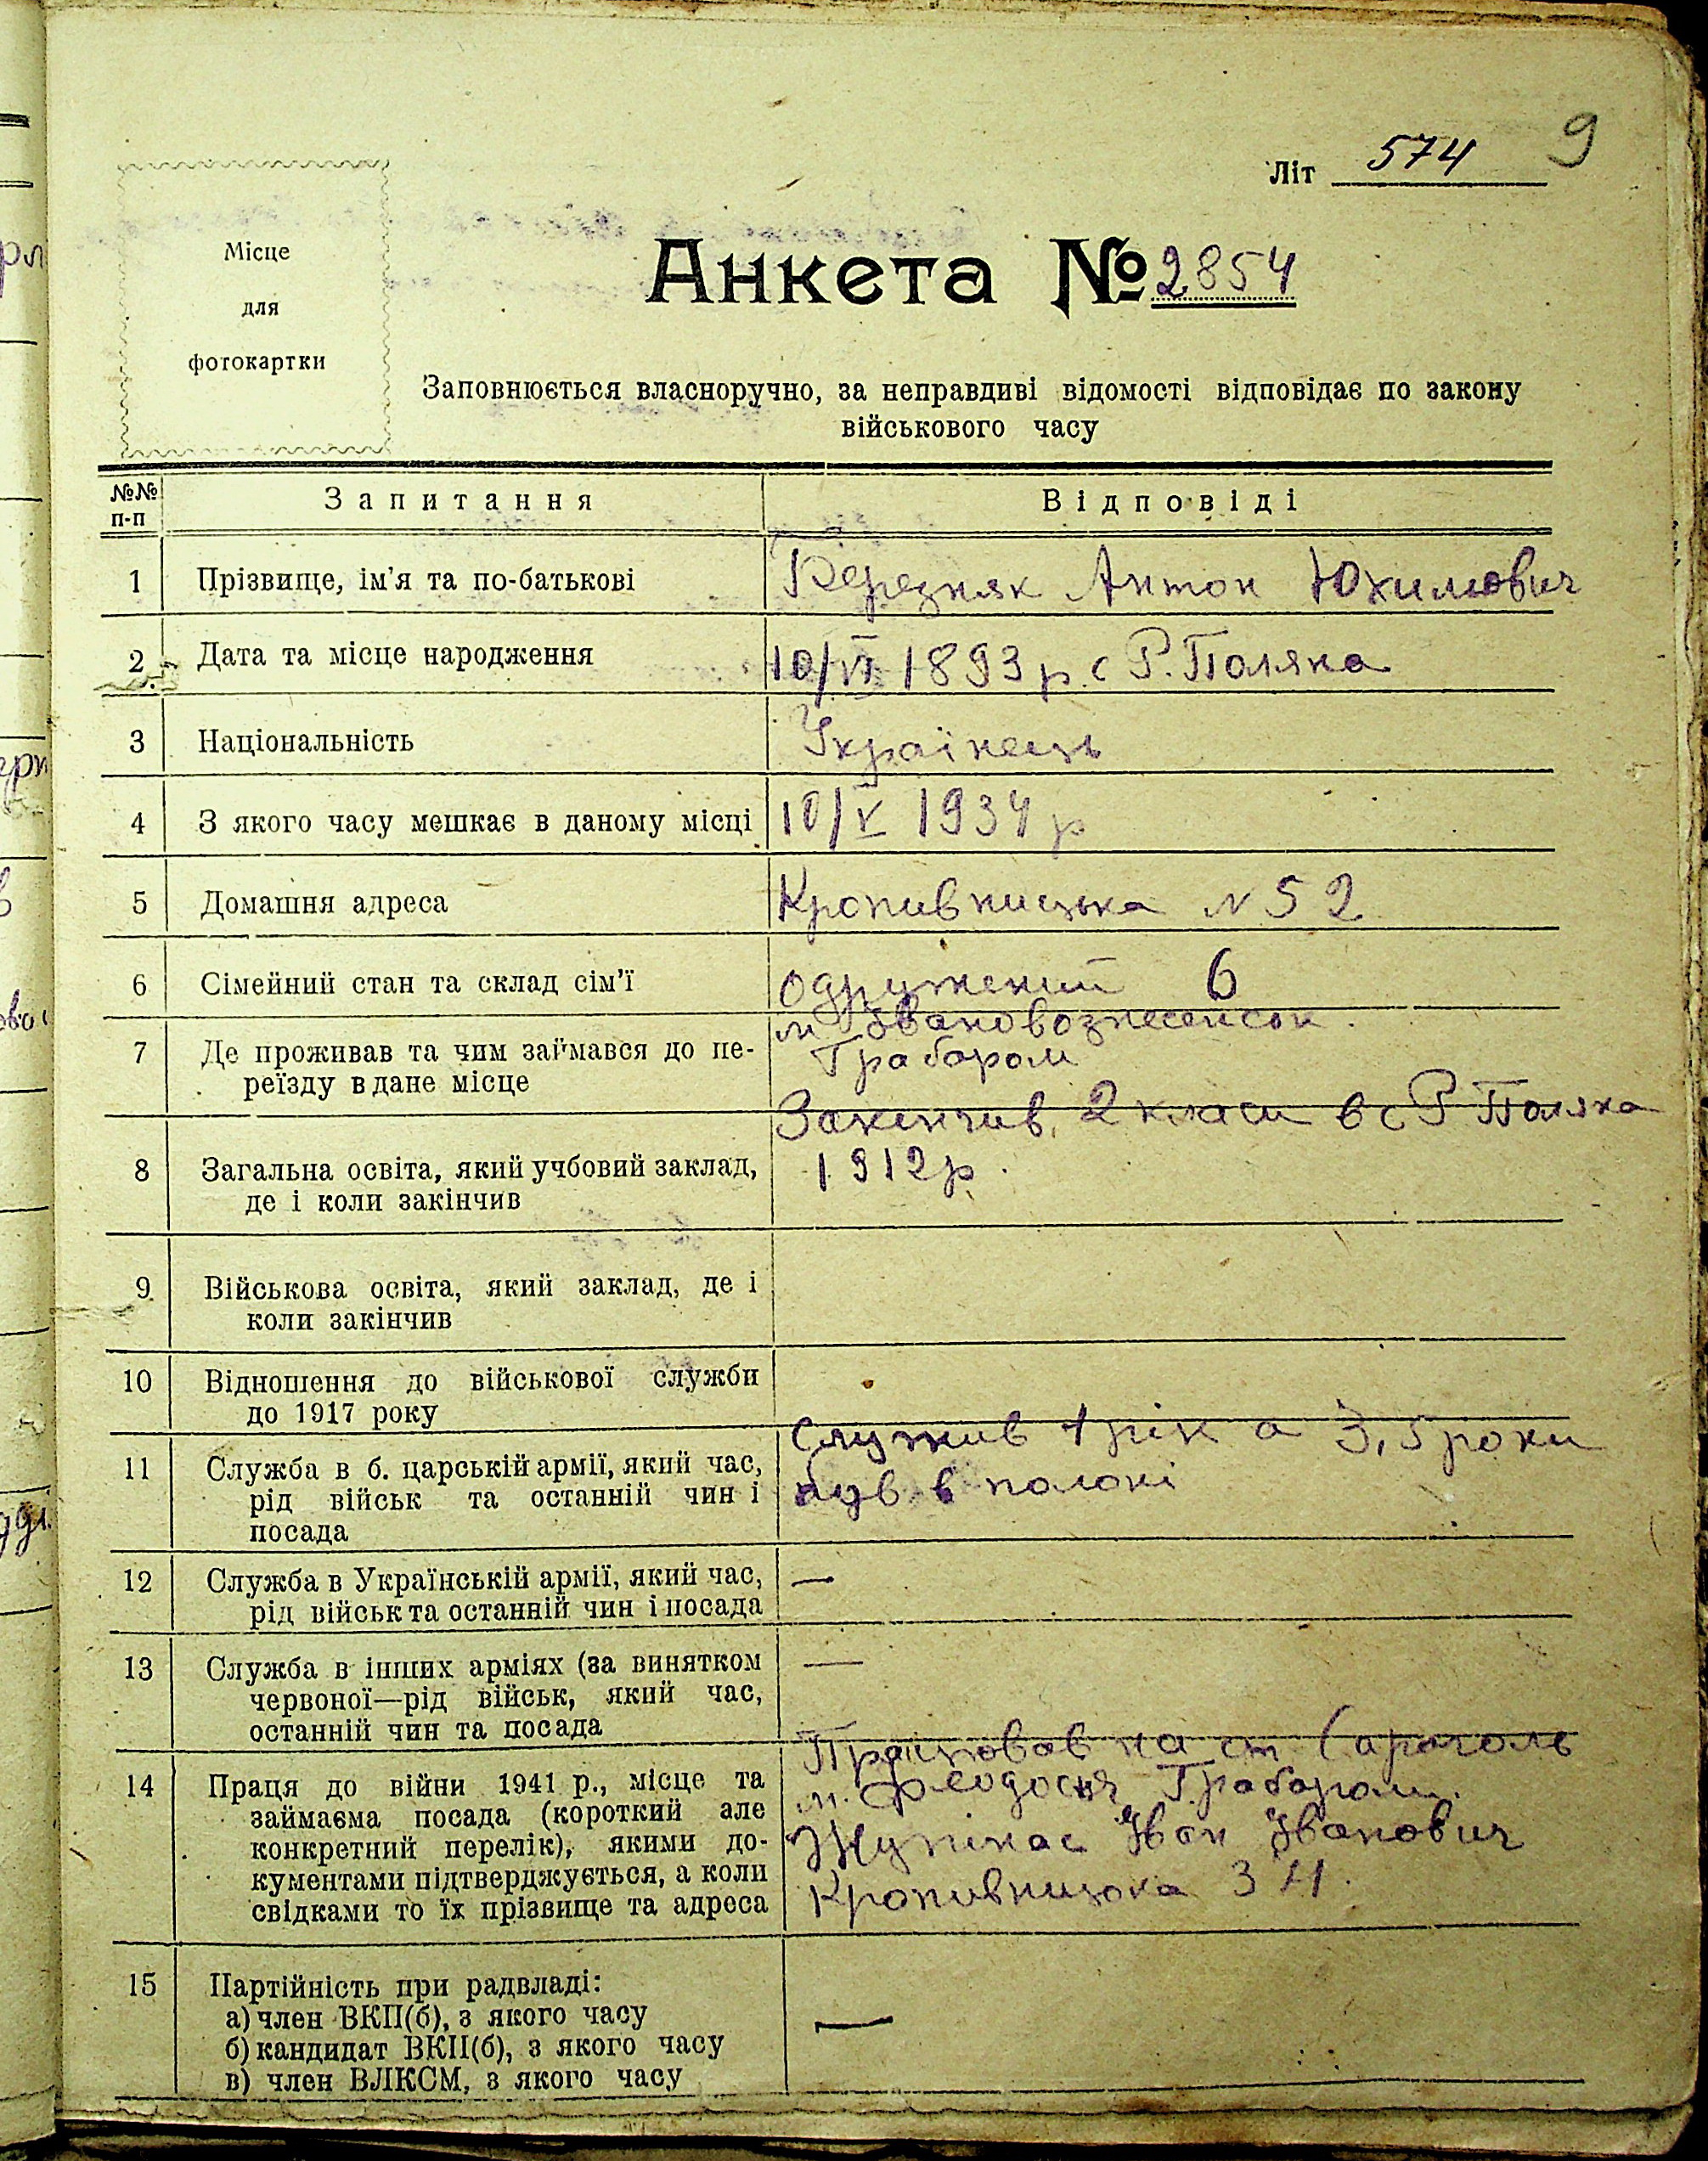 9
Літ 574
Місце
для
фотокартки
Анкета № 2854
Заповнюється власноручно, за неправдиві відомості відповідає по закону
військового часу
№№
п-п
Запитання Відповіді
1 Прізвище, ім’я та по-батькові Березняк Антон Юхимович
2 Дата та місце народження 10/VI 1893 р. с Р. Поляна
3 Національність Українець
4 З якого часу мешкає в даному місці 10/V 1934 р
5 Домашня адреса Кропивницька N 52
6 Сімейний стан та склад сім’ї одружений 6
7 Де проживав та чим займався до пе-
реїзду в дане місце
м Івановознесенськ.
Грабаром
8 Загальна освіта, який учбовий заклад,
де і коли закінчив
Закінчив 2 класи в с Р Поляна
1912 р.
9 Військова освіта, який заклад, де і
коли закінчив
10 Відношення до військової служби
до 1917 року
11 Служба в б. царській армії, який час,
рід військ та останній чин і
посада
Служив 1 рік а 3,5 роки
був в полоні
12 Служба в Українській армії, який час,
рід військ та останній чин і посада
—
13 Служба в інших арміях (за винятком
червоної—рід військ, який час,
останній чин та посада
—
14 Праця до війни 1941 р., місце та
займаєма посада (короткий але
конкретний перелік), якими до-
кументами підтверджується, а коли
свідками то їх прізвище та адреса
Працював на ст
м. Феодосія Грабаром.
Іван Іванович
Кропивницька 34.
15 Партійність при радвладі:
а) член ВКП(б), з якого часу
б) кандидат ВКП(б), з якого часу
в) член ВЛКСМ, з якого часу
—